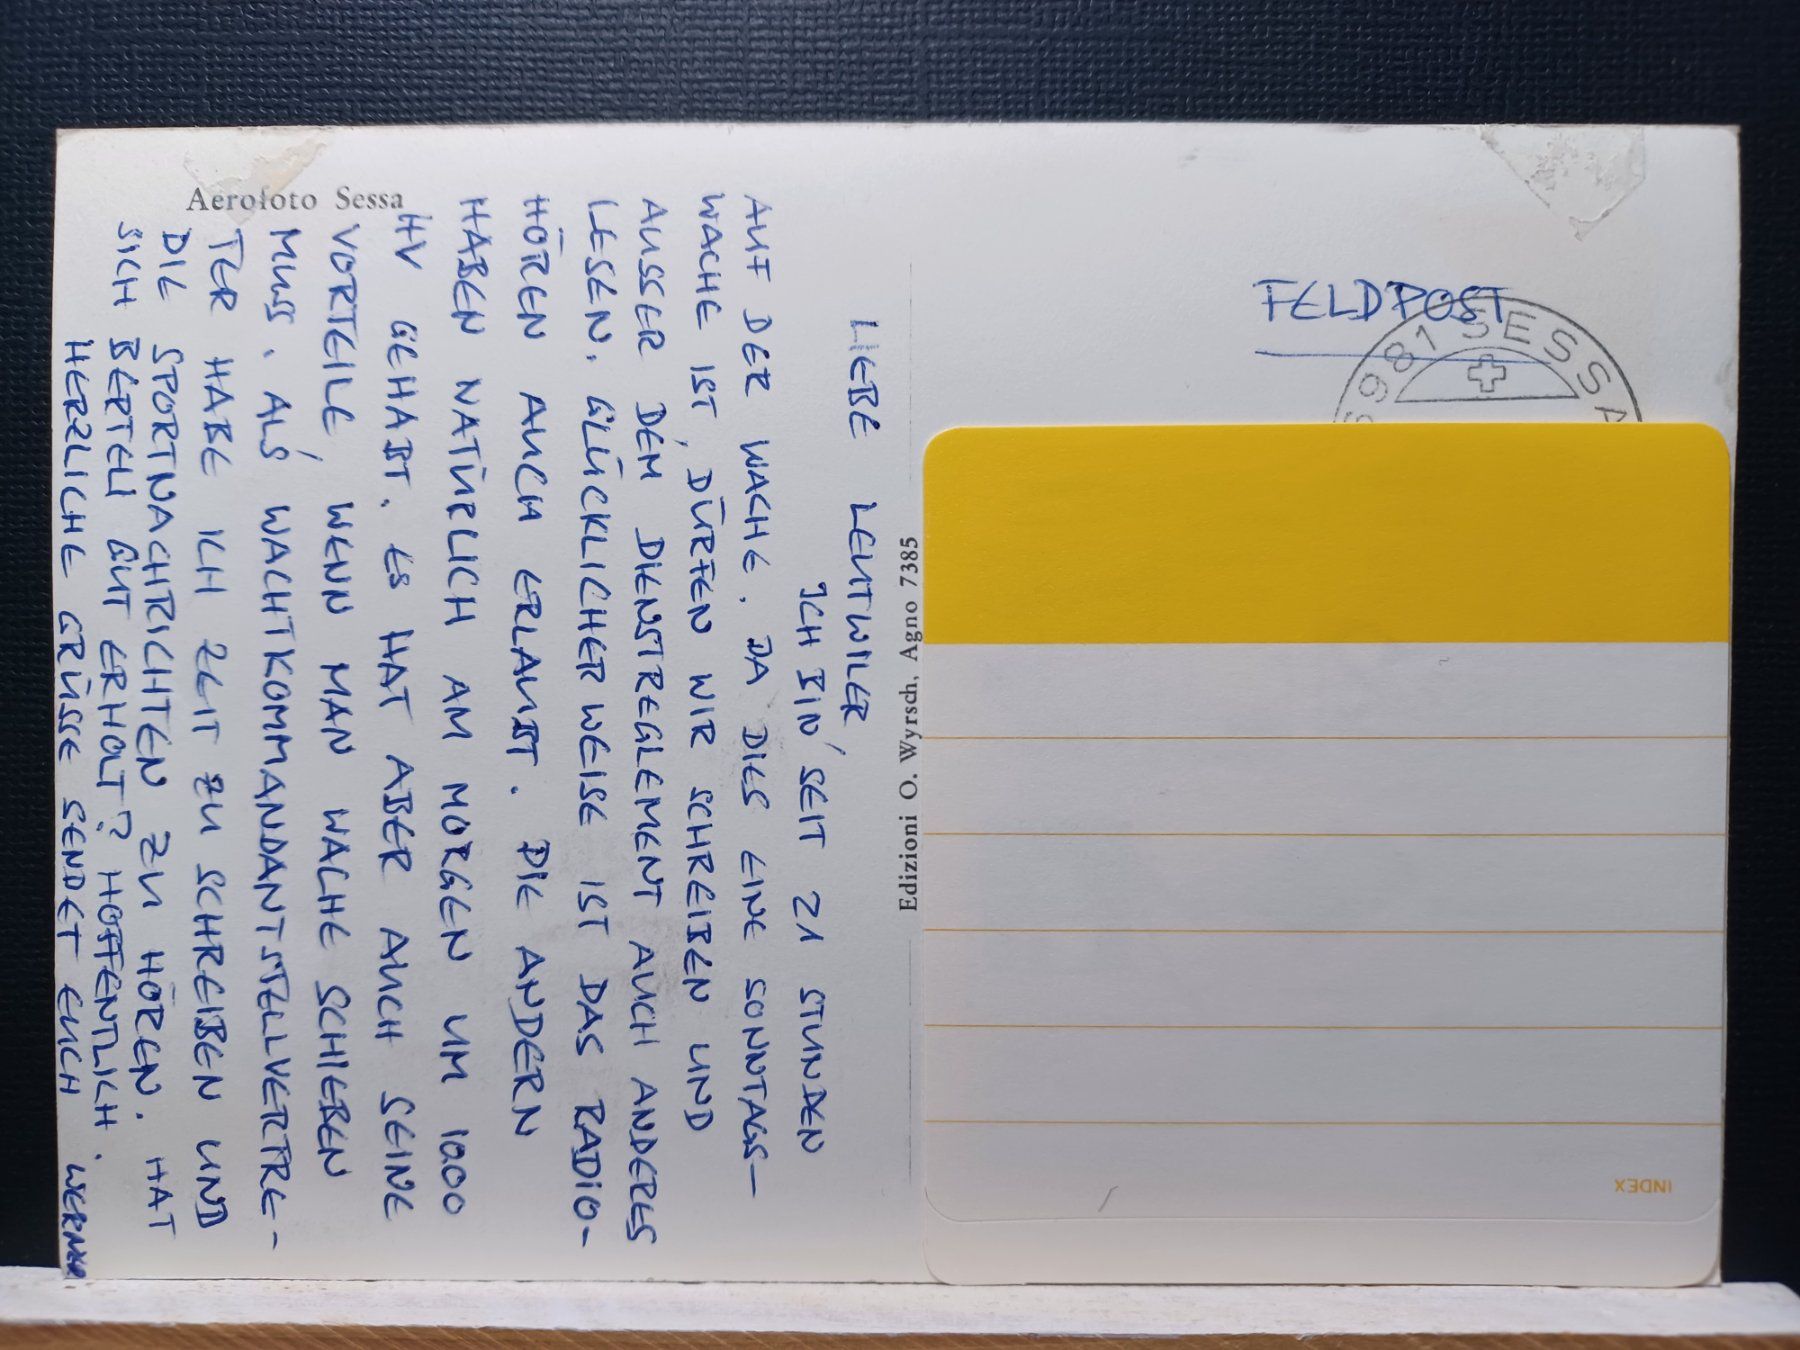 Aerofoto Sessa
LIEBE LEUTWILER,
ICH BIN SEIT 21 STUNDEN
AUF DER WACHE. DA DIES EINE SONNTAGS-
WACHE IST, DÜRFEN WIR SCHREIBEN UND
AUSSER DEM DIENSTREGLEMENT AUCH ANDERES
LESEN. GLÜCKLICHERWEISE IST DAS RADIO-
HÖREN AUCH ERLAUBT. DIE ANDERN
HABEN NATÜRLICH AM MORGEN UM 1000
HV GEHABT. ES HAT ABER AUCH SEINE
VORTEILE, WENN MAN WACHE SCHIEBEN
MUSS. ALS WACHTKOMMANDANTSTELLVERTRE-
TER HABE ICH ZEIT ZU SCHREIBEN UND
DIE SPORTNACHRICHTEN ZU HÖREN. HAT
SICH BERTELI GUT ERHOLT? HOFFENTLICH.
HERZLICHE GRÜSSE SENDET EUCH WERNER
Edizioni O. Wyrsch, Agno 7385
FELDPOST
6981 SESSA
INDEX